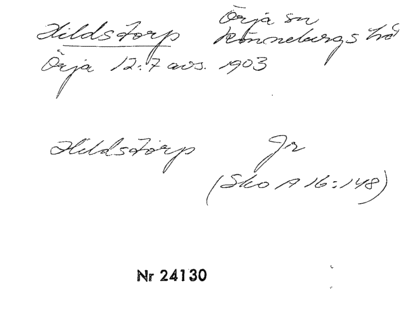 Hildstorp Örja sn
Rönnebergs hd
Örja 12:7 avs. 1903
Hildstorp Jr
(Sko A 16:148)
Nr 24130